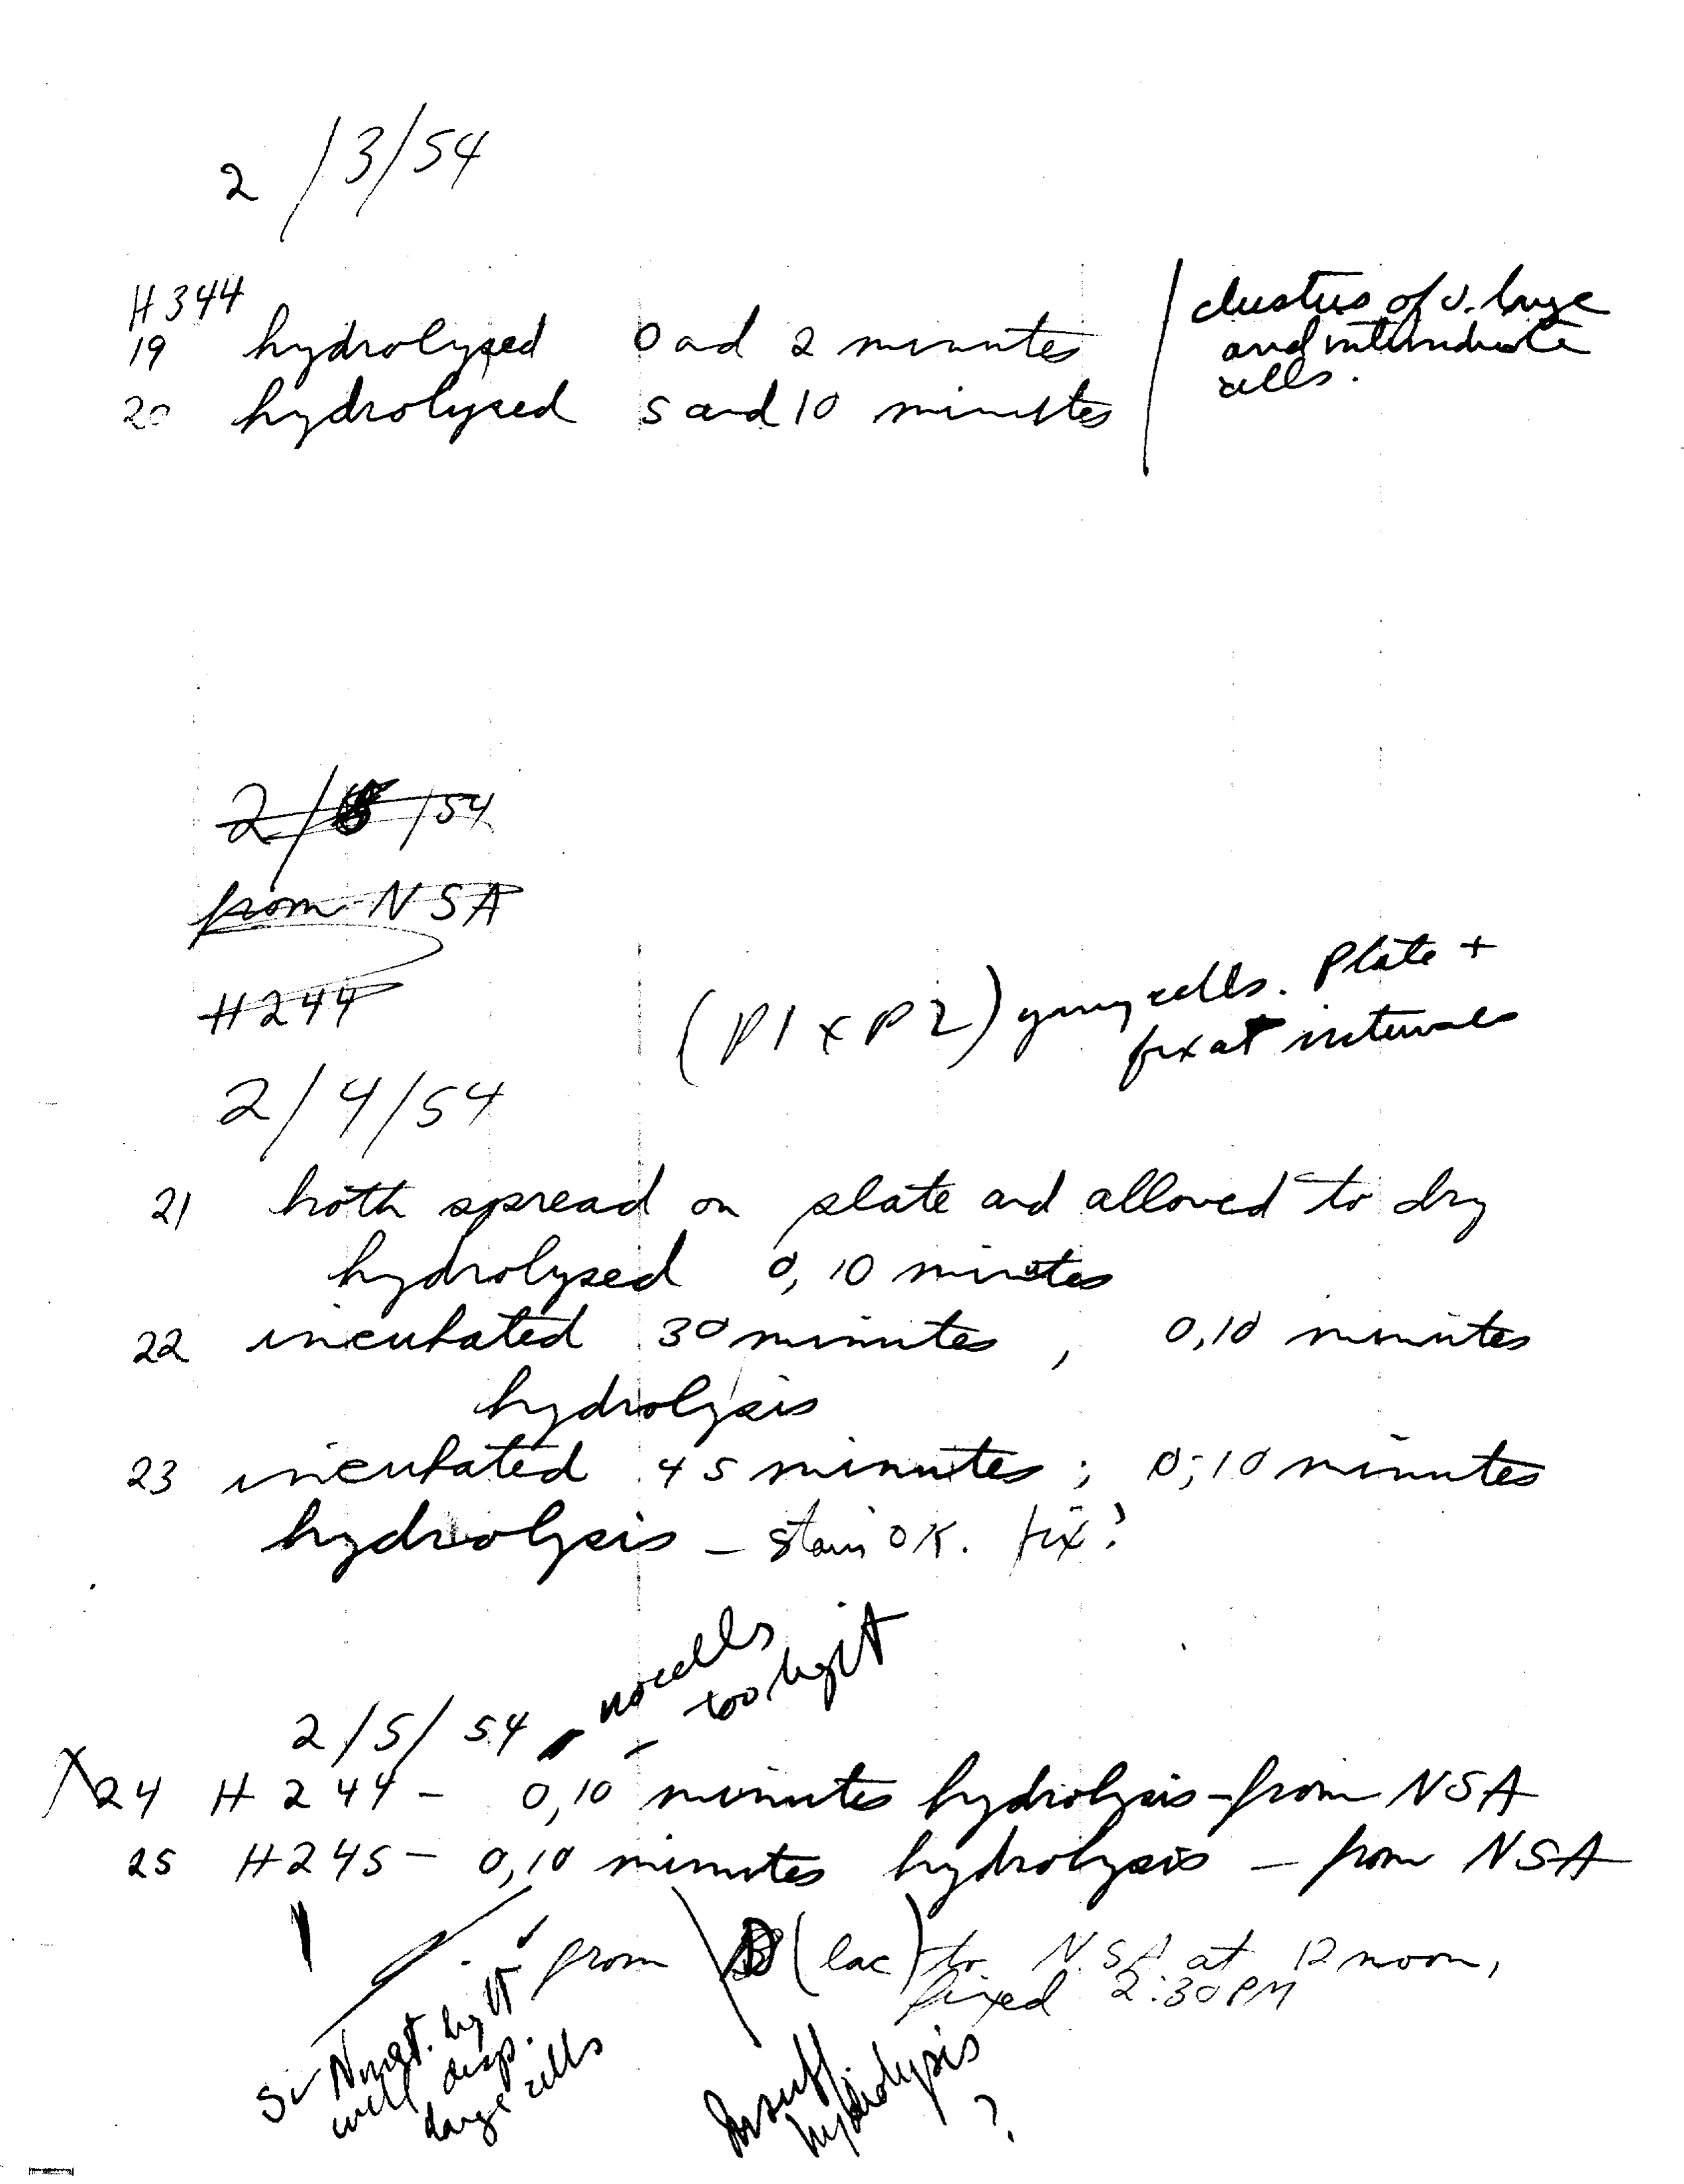 2/3/54
H344
19 hydrolyzed 0 and 2 minutes
20 hydrolyzed 5 and 10 minutes
clusters of v. large
and intermediate
cells.
2/ /54
from NSA
H244
(P1 x P2) young cells. Plate +
fix at intervals
2/4/54
21 broth spread on plate and allowed to dry
hydrolyzed 0, 10 minutes
22 incubated 30 minutes, 0,10 minutes
hydrolysis
23 incubated 45 minutes; 0,10 minutes
hydrolysis - stain OK. fix?
2/5/54
no cells
too light
X 24 H 244 - 0,10 minutes hydrolysis - from NSA
25 H245 - 0,10 minutes hydrolysis - from NSA
from (lac) to NSA at 12 noon,
fixed 2:30 PM
well disp.
large cells
Insuff
hydrolysis
?